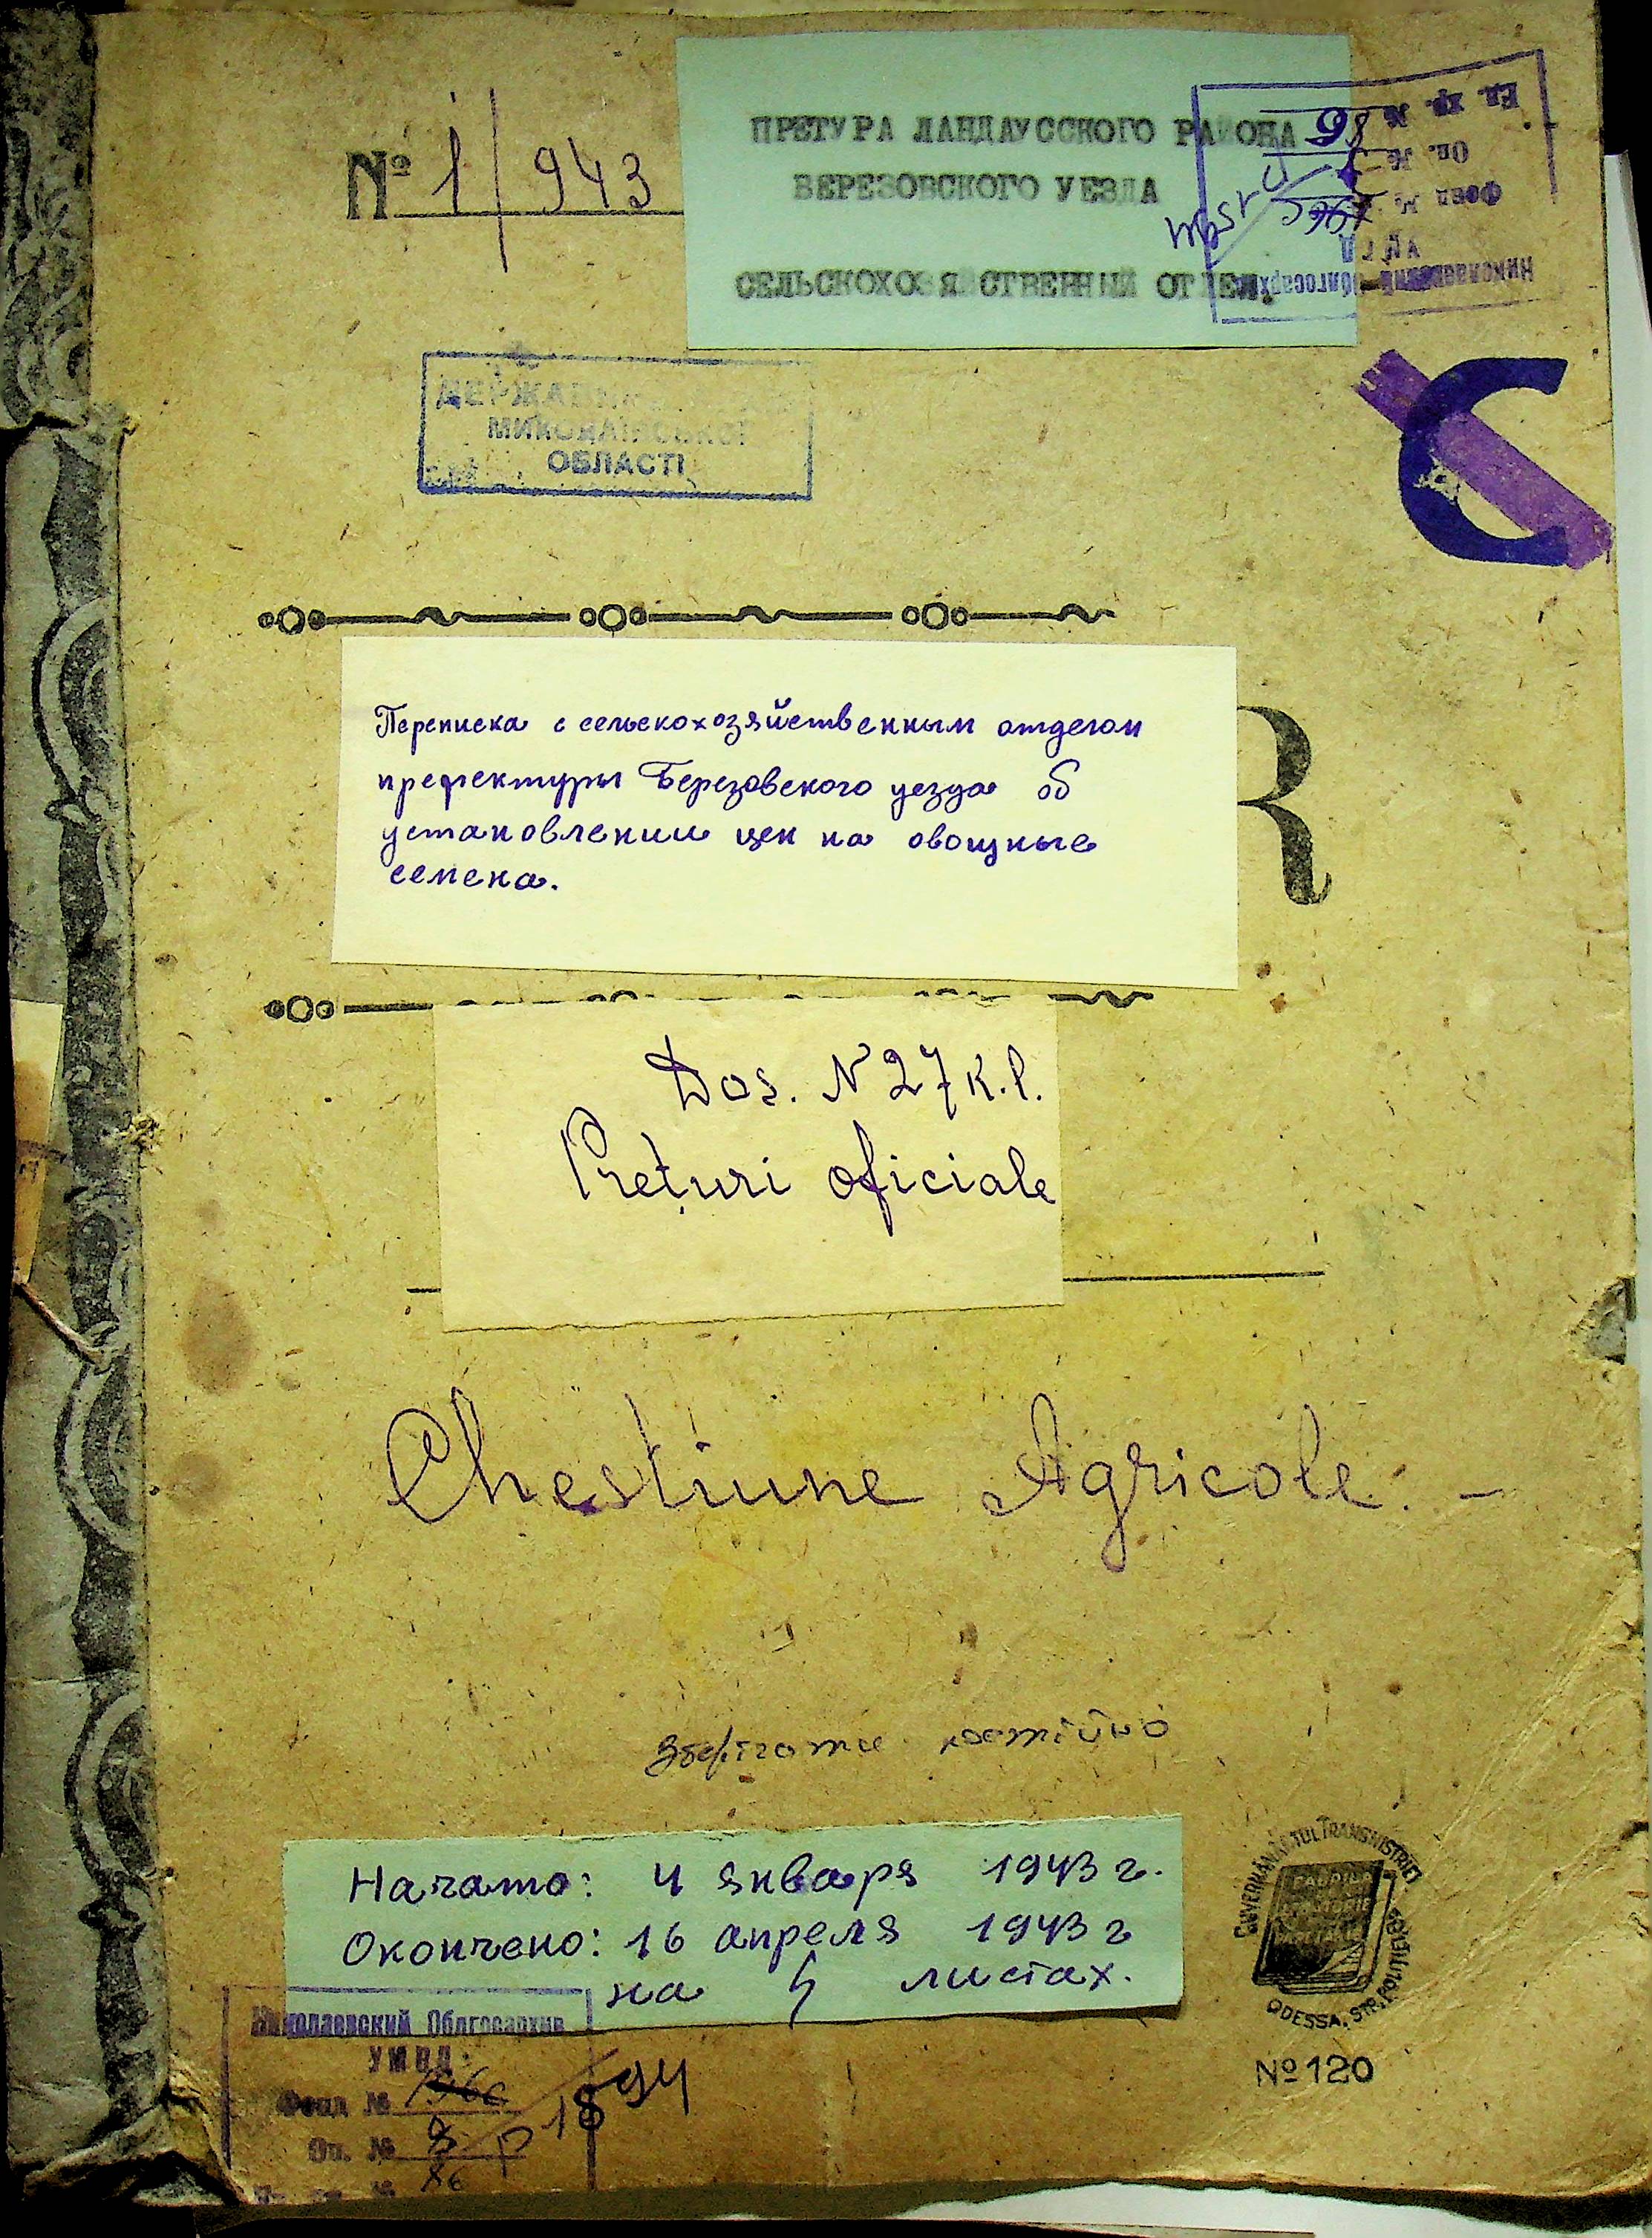 № 1/943
ПРЕТУРА ЛАНДАУССКОГО РАЙОНА
БЕРЕЗОВСКОГО УЕЗДА
СЕЛЬСКОХОЗЯЙСТВЕННЫЙ ОТДЕЛ.
Николаевский Облгосархив
Фонд №
Оп. №
Ед. хр. № 98
МИКОЛАЇВСЬКОЇ
ОБЛАСТІ
C
Переписка с сельскохозяйственным отделом
префектуры Березовского уезда об
установлении цен на овощные
семена.
R
Dos. N 27 K.l.
Prețuri oficiale
Chestiune Agricole. -
Зберігати постійно
Начато: 4 января 1943 г.
Окончено: 16 апреля 1943 г
на 4 листах.
GUVERNĂMÂNTUL TRANSNISTRIEI
FABRICA
ODESSA, STR.
№ 120
Николаевский Облгосархив
УМВД
Фонд № 1894
Оп. №